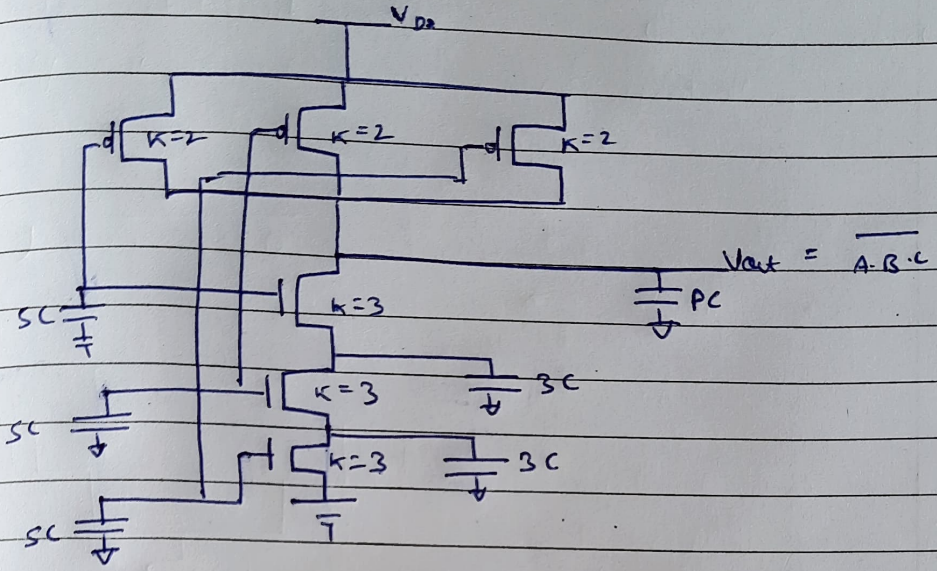 VDD
K=2
K=2
K=2
Vout = A.B.C
PC
5C
K=3
K=3
3C
5C
K=3
3C
5C